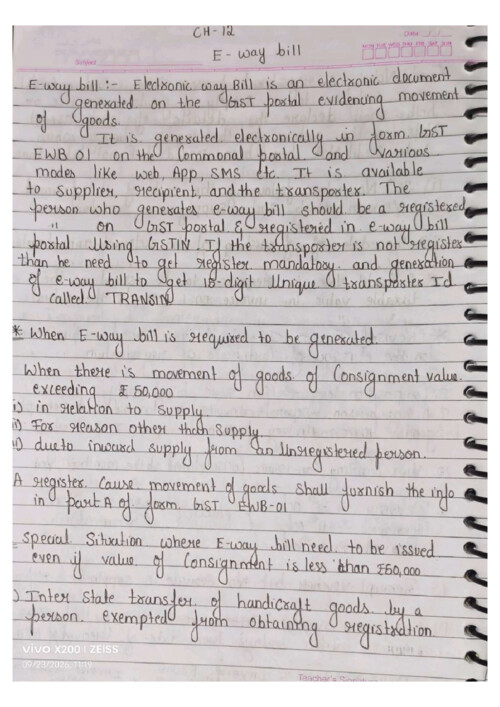 CH-12
Date
MON TUE WED THU FRI SAT SUN
E-way bill
Subject
E-way bill :- Electronic way Bill is an electronic document
generated on the GST portal evidencing movement
of goods.
It is generated electronically in form GST
EWB 01 on the Commonal portal and various
modes like web, App, SMS etc. It is available
to supplier, recipient, and the transporter. The
person who generates e-way bill should be a registered
" on GST portal & registered in e-way bill
portal Using GSTIN. If the transporter is not register
than he need to get register mandatory. and generation
of e-way bill to get 15-digit Unique transporter Id
called TRANSIN
* When E-way bill is required to be generated.
When there is movement of goods of Consignment value
exceeding ₹ 50,000
i) in relation to supply
ii) For reason other than Supply
iii) due to inward supply from an Unregistered person.
A register. Cause movement of goods shall furnish the info
in part A of form GST EWB-01
special Situation where E-way bill need to be issued
even if value of Consignment is less than ₹50,000
) Inter state transfer of handicraft goods by a
person. exempted from obtaining registration.
vivo X200 | ZEISS
Teacher's